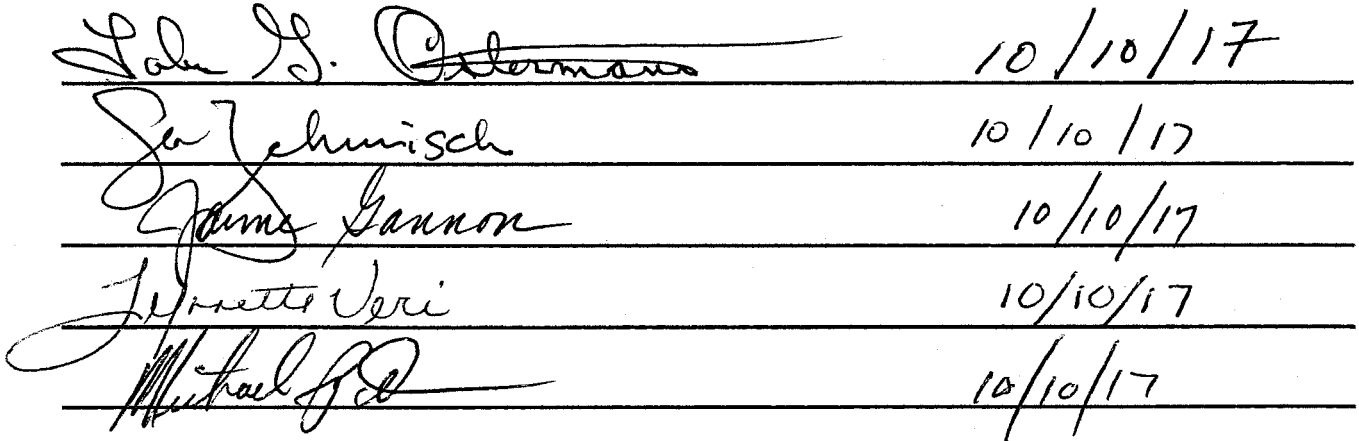 John G. Ostermann 10/10/17
10/10/17
Jaime Gannon 10/10/17
Lynnette Veri 10/10/17
Michael 10/10/17